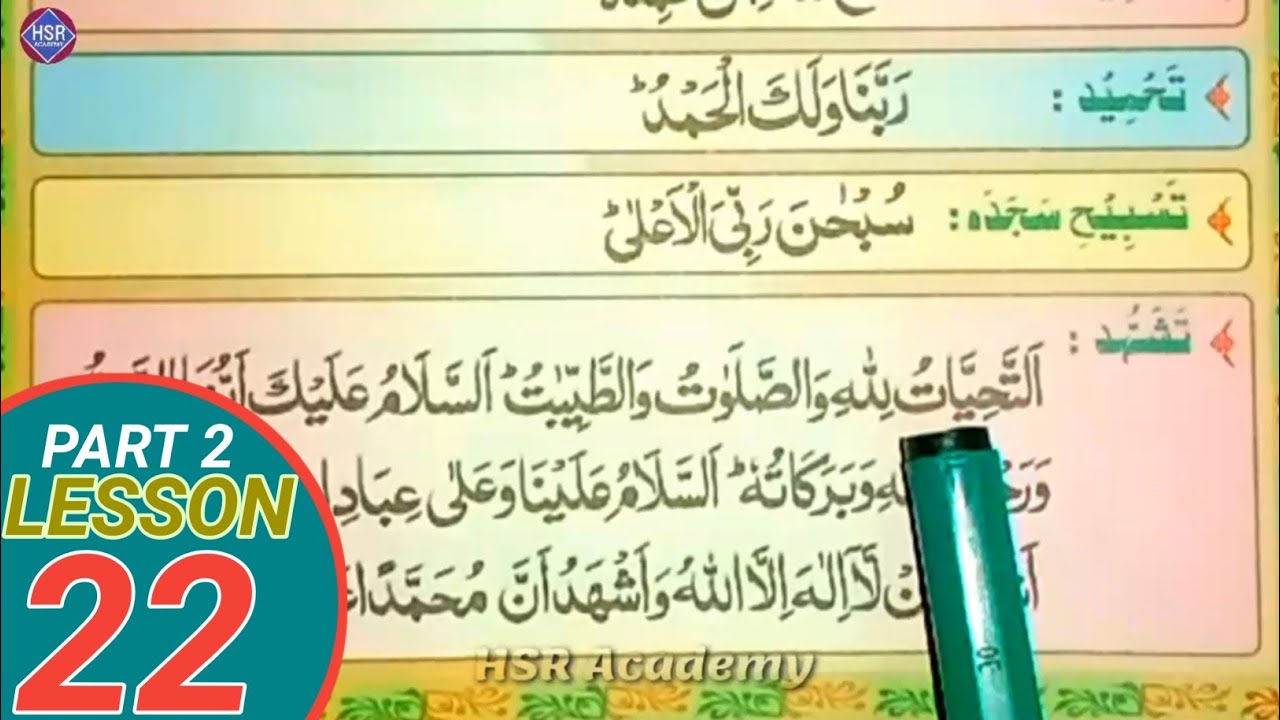 HSR
ACADEMY
تَحْمِيْد : رَبَّنَا وَلَكَ الْحَمْدُ ؕ
تَسْبِيْحِ سَجَدَہ : سُبْحٰنَ رَبِّیَ الْاَعْلٰی ؕ
تَشَہُّد :
اَلتَّحِيَّاتُ لِلّٰهِ وَالصَّلَوٰتُ وَالطَّيِّبٰتُ ؕ اَلسَّلَامُ عَلَيْكَ
وَبَرَكَاتُهٗ ؕ اَلسَّلَامُ عَلَيْنَا وَعَلٰى
لَّآ اِلٰهَ اِلَّا اللّٰهُ وَاَشْهَدُ اَنَّ مُحَمَّدًا
PART 2
LESSON
22
HSR Academy
30